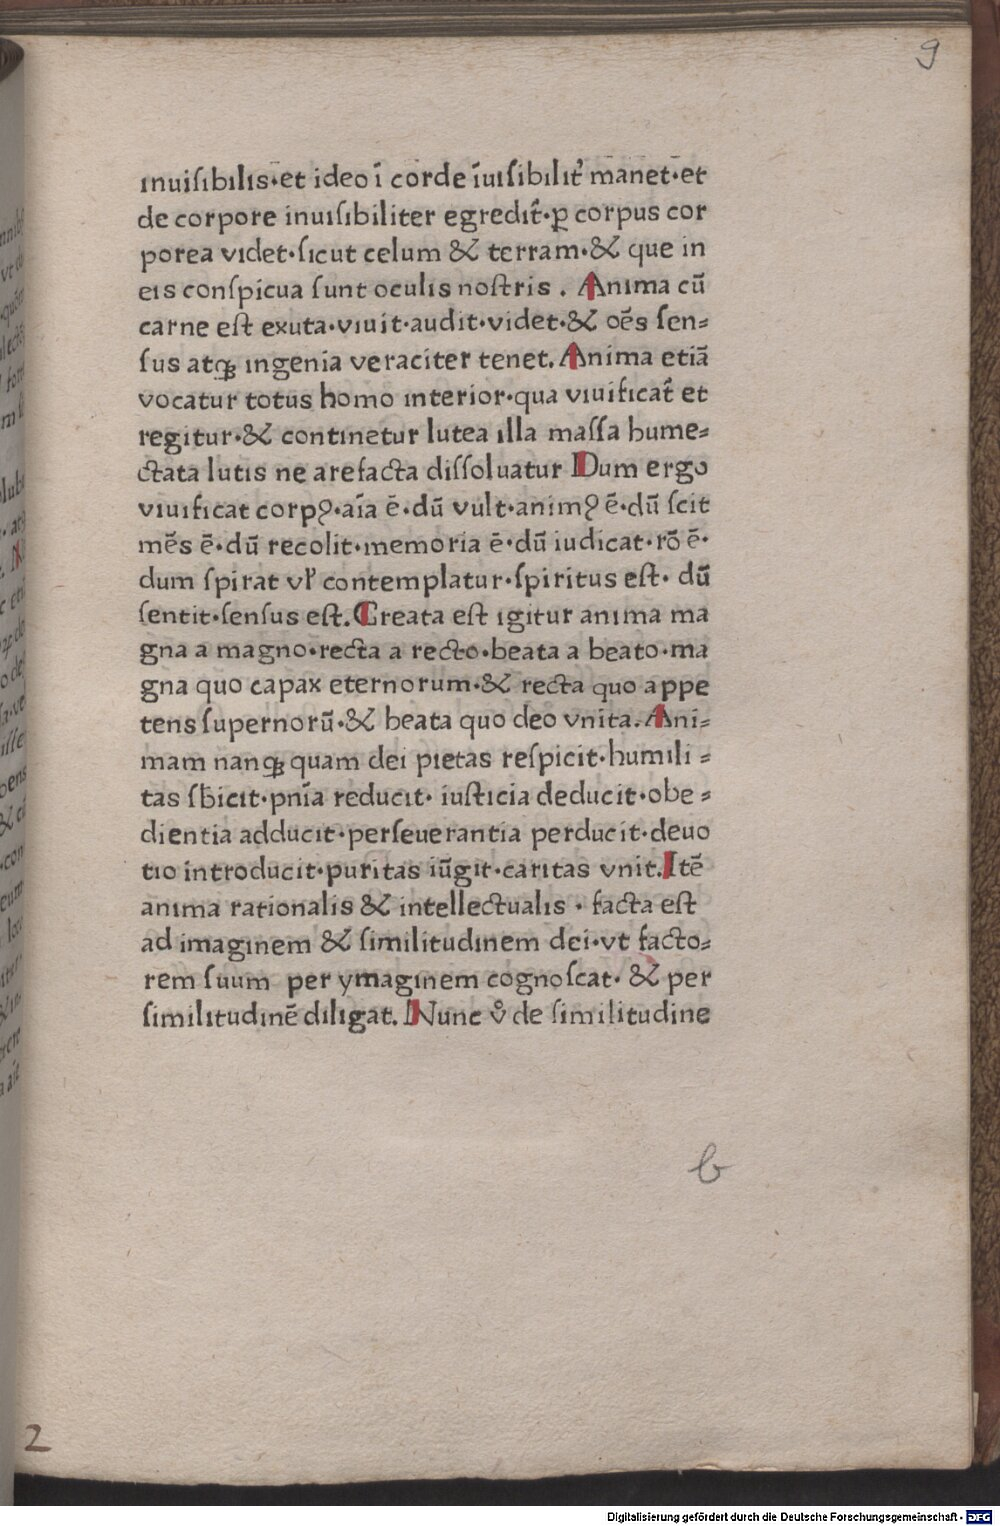 9
inuiſibilis·et ideo ī corde īuiſibilit᷑ manet·et
de corpore inuiſibiliter egredit᷑·ꝑ corpus cor
porea videt·ſicut celum & terram·& que in
eis conſpicua ſunt oculis noſtris . Anima cū
carne eſt exuta·viuit·audit·videt·& oēs ſen⸗
ſus atqꝫ ingenia veraciter tenet. Anima etiā
vocatur totus homo interior·qua viuificat᷑ et
regitur·& continetur lutea illa maſſa hume⸗
ctata lutis ne arefacta diſſoluatur Dum ergo
viuificat corpꝯ·aīa ē·dū vult·animꝯ ē·dū ſcit
mēs ē·dū recolit·memoria ē·dū iudicat·rō ē·
dum ſpirat vl̓ contemplatur·ſpiritus eſt· dū
ſentit·ſenſus eſt. Creata eſt igitur anima ma
gna a magno·recta a recto·beata a beato·ma
gna quo capax eternorum·& recta quo appe
tens ſupernorū·& beata quo deo vnita. Ani⸗
mam nanqꝫ quam dei pietas reſpicit·humili ⸗
tas ſb̄icit·pnīa reducit· iuſticia deducit·obe ⸗
dientia adducit·perſeuerantia perducit·deuo
tio introducit·puritas iūgit·caritas vnit. Itē
anima rationalis & intellectualis · facta eſt
ad imaginem & ſimilitudinem dei·vt facto⸗
rem ſuum per ymaginem cognoſcat· & per
ſimilitudinē diligat. Nunc v̊ de ſimilitudine
b
2
Digitalisierung gefördert durch die Deutsche Forschungsgemeinschaft - DFG